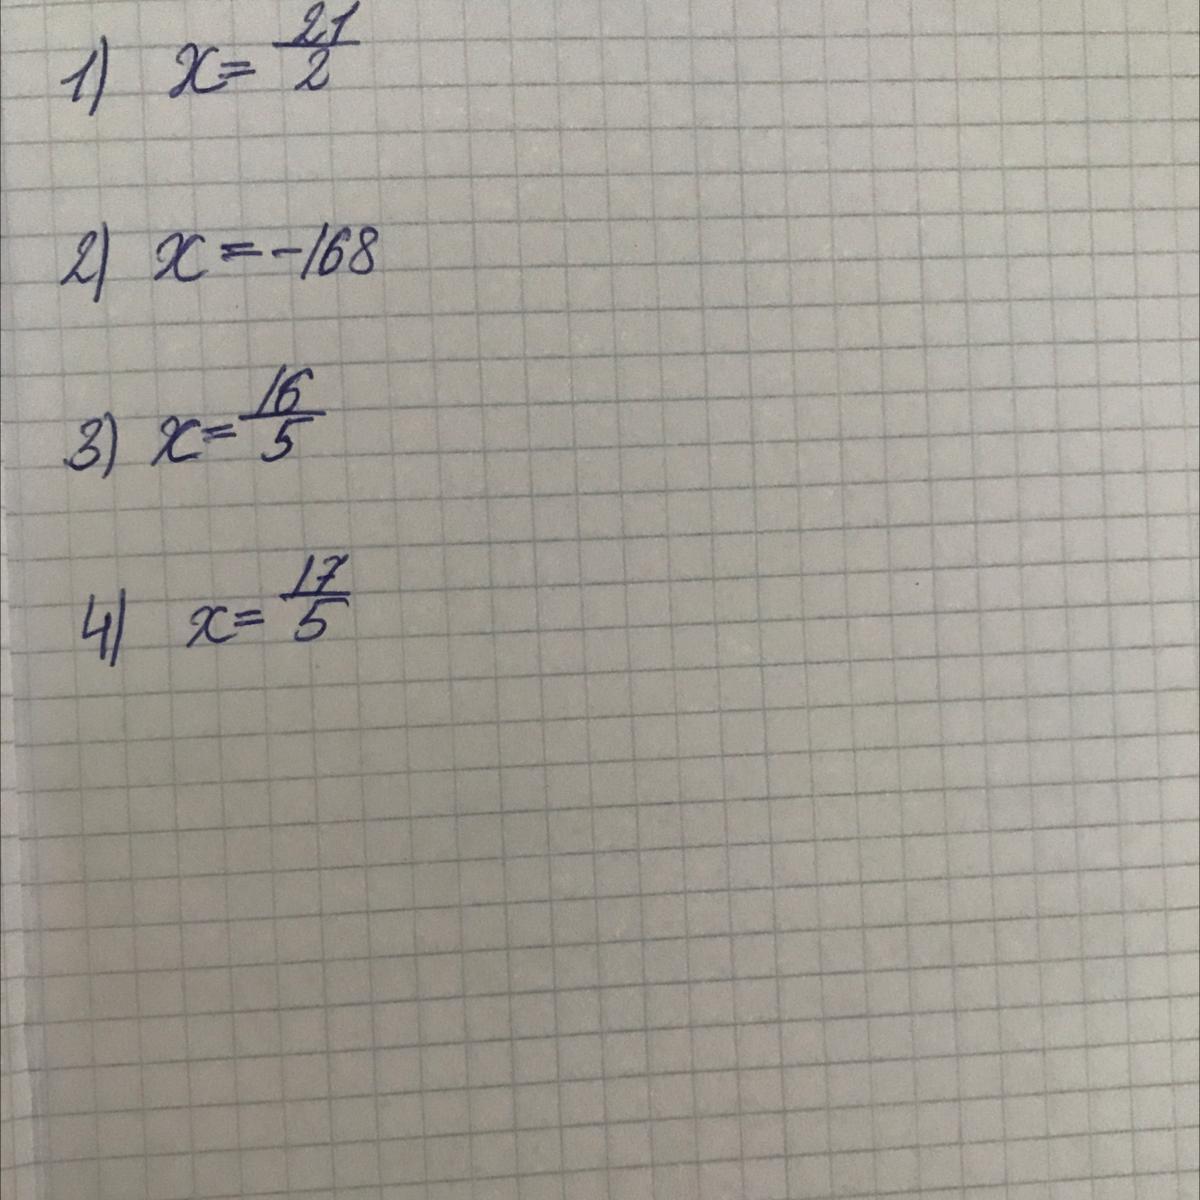 1) x = 21/2
2) x = -168
3) x = 16/5
4) x = 17/5